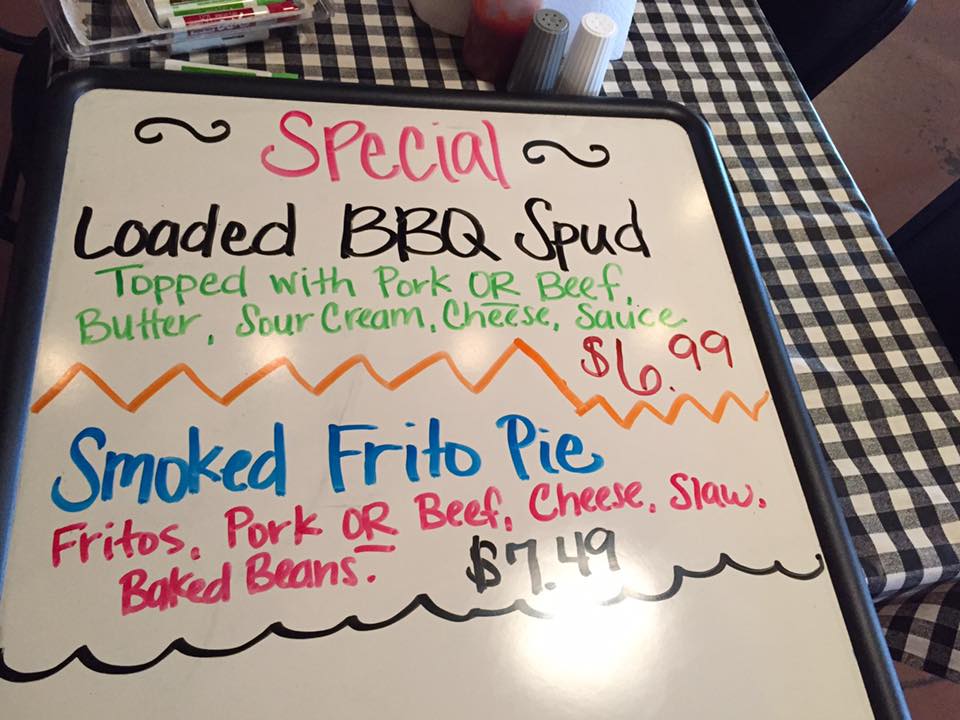 Special
Loaded BBQ Spud
Topped with Pork OR Beef,
Butter, Sour Cream, Cheese, Sauce
$6.99
Smoked Frito Pie
Fritos, Pork OR Beef, Cheese, Slaw,
Baked Beans. $7.49